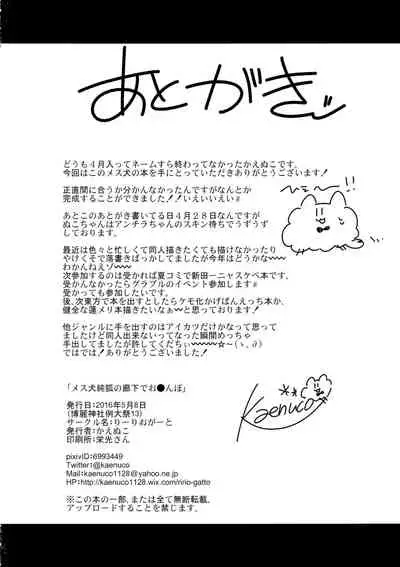 あとがき
どうも4月入ってネームすら終わってなかったかえぬこです。
今回はこのメス犬の本を手にとっていただきありがとうございます!
正直間に合うか分かんなかったんですがなんとか
完成することができました!!いえいいえい#
あとこのあとがき書いてる日4月28日なんですが
ぬこちゃんはアンチラちゃんのスキン待ちでうずうず
しております。
最近は色々と忙しくて同人描きたくても描けなかったり
やけくそで落書きばっかしてましたが今年はどうかな〰
わかんねえゾ〰
次参加するのは受かれば夏コミで新田ーニャスケベ本です。
受かんなかったらグラブルのイベント参加します#
受かっても参加したいです。
後、次東方で本を出すとしたらケモ化かげばんえっち本か、
健全な蓮メリ本描きたいなぁ〰と思っております!
他ジャンルに手を出すのはアイカツだけかなって思って
ましたけど同人出来ないってなった瞬間めっちゃ
手出してましたが許してくだちぃ〰〰☆~(ゝ。∂)
ではでは!ありがとうございました!
ひぇ〰!!
Kaenuco
「メス犬純狐の廊下でお●んぽ」
発行日:2016年5月8日
(博麗神社例大祭13)
サークル名:りーりおがーと
発行者:かえぬこ
印刷所:栄光さん
pixivID:6993449
Twitter:@kaenuco
Mail:kaenuco1128@yahoo.ne.jp
HP:http://kaenuco1128.wix.com/ririo-gatto
※この本の一部、または全て無断転載、
アップロードすることを禁じます。